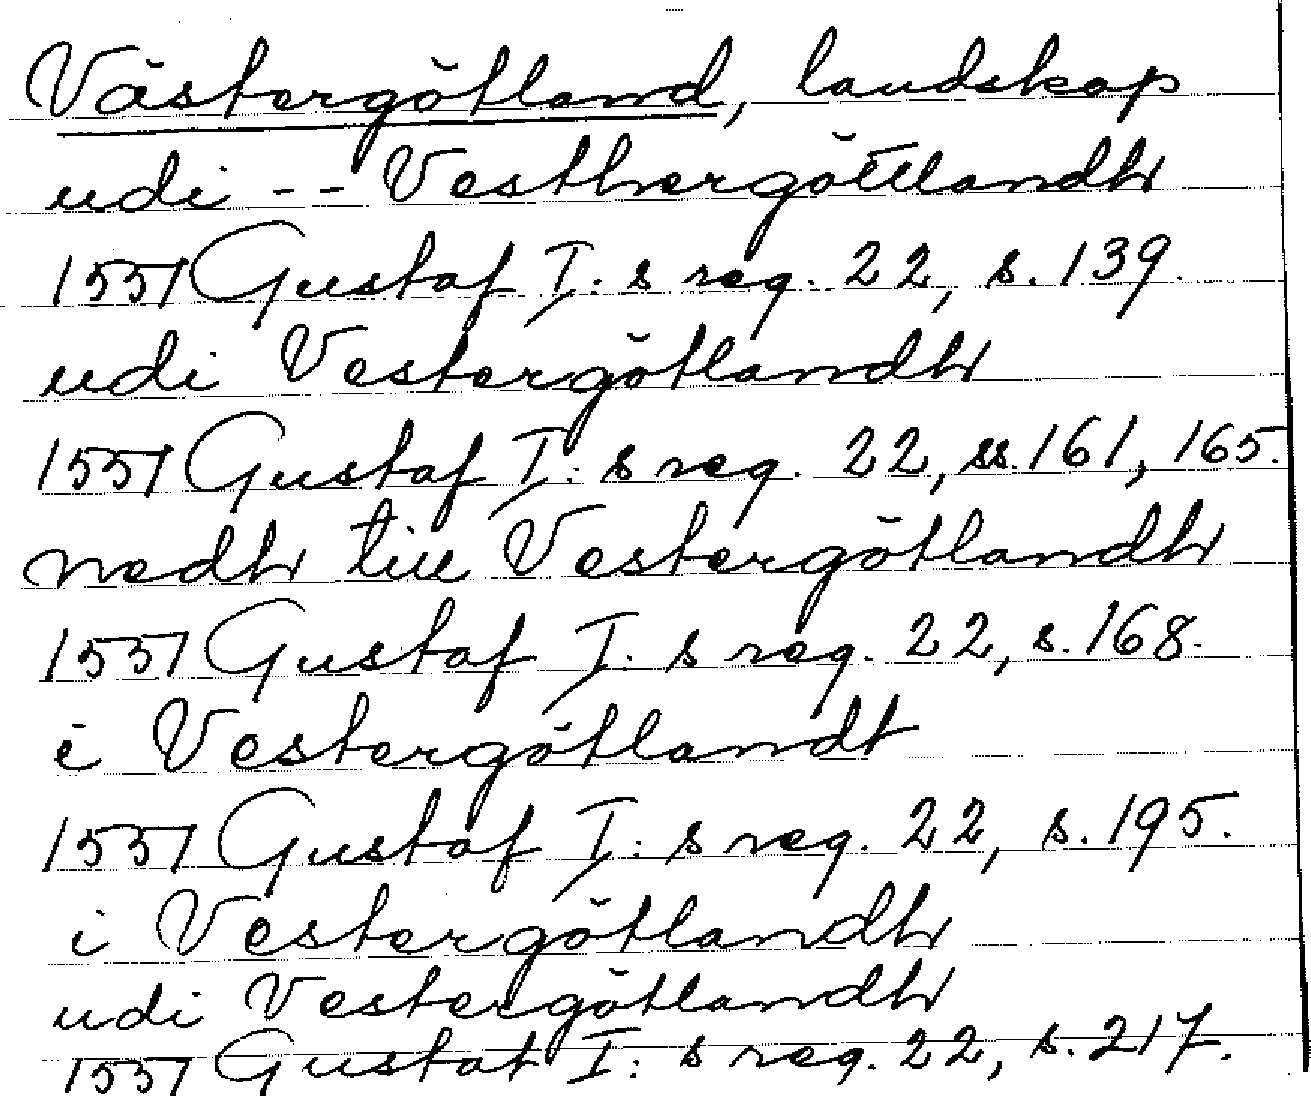 Västergötland, landskap
udi -- Vesthergöttlandh
1551 Gustaf I:s reg. 22, s. 139.
udi Vestergötlandh
1551 Gustaf I:s reg. 22, ss. 161, 165.
nedh till Vestergötlandh
1551 Gustaf I:s reg. 22, s. 168.
i Vestergötlandt
1551 Gustaf I:s reg. 22, s. 195.
i Vestergötlandh
udi Vestergötlandh
1551 Gustaf I:s reg. 22, s. 217.